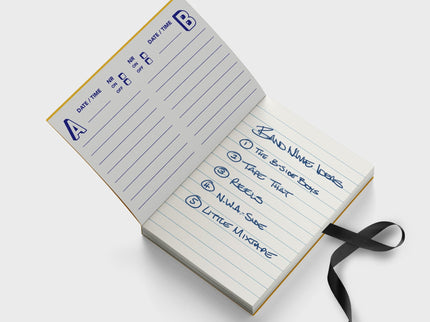 A
DATE / TIME
NR
ON
OFF
B
DATE / TIME
NR
ON
OFF
BAND NAME IDEAS
1 THE B-SIDE BOYS
2 TAPE THAT
3 REELS
4 N.W.A. SIDE
5 LITTLE MIXTAPE